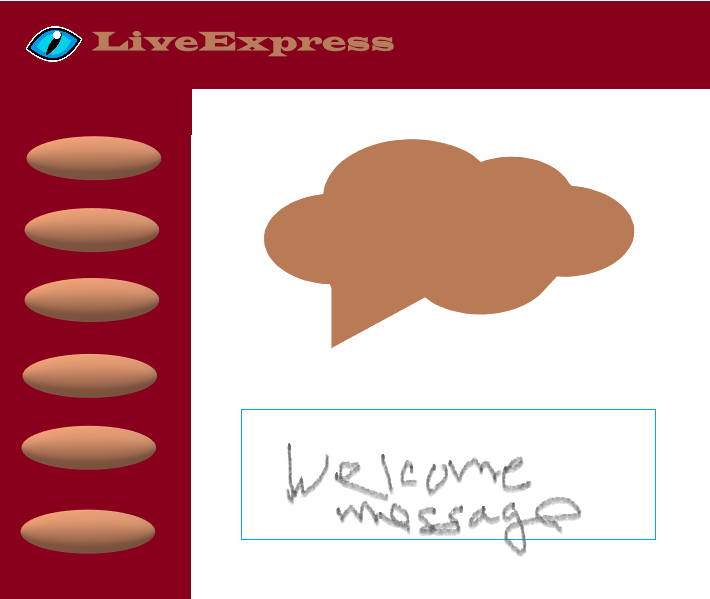 LiveExpress
Welcome
message